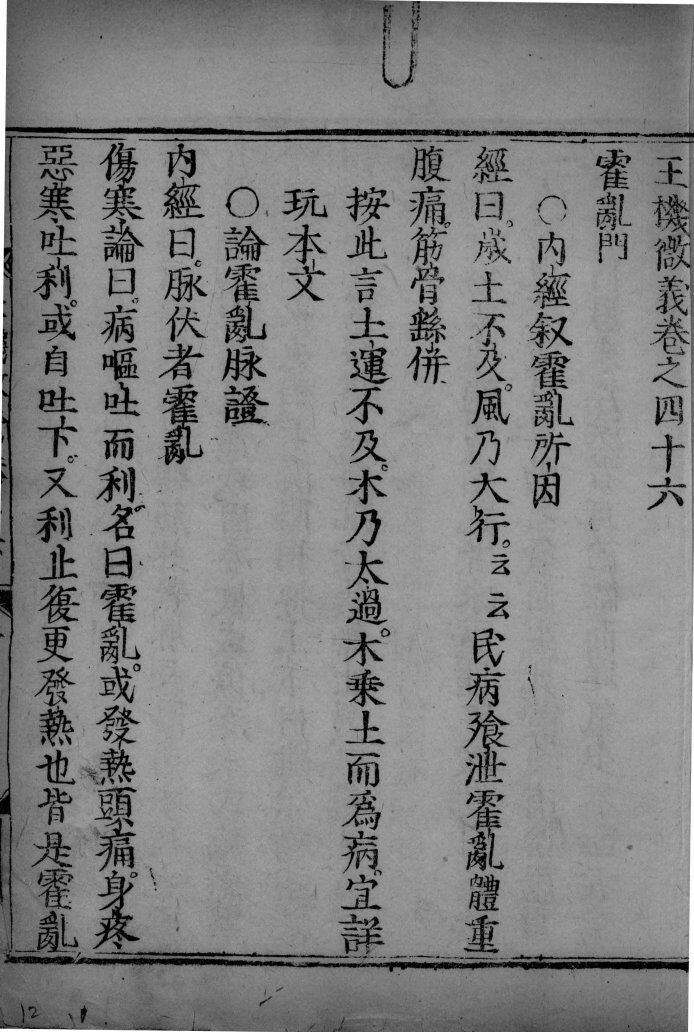 玉機微義卷之四十六
霍亂門
○內經叙霍亂所因
經曰。嵗土不及。風乃大行。云云民病飱泄霍亂體重
腹痛。筋骨繇併
按此言土運不及。木乃太過。木乘土而爲病。宜詳
玩本文
○論霍亂脉證
內經曰。脉伏者霍亂
傷寒論曰。病嘔吐而利。名曰霍亂。或發熱頭痛。身疼
惡寒吐利。或自吐下。又利止復更發熱也皆是霍亂
12